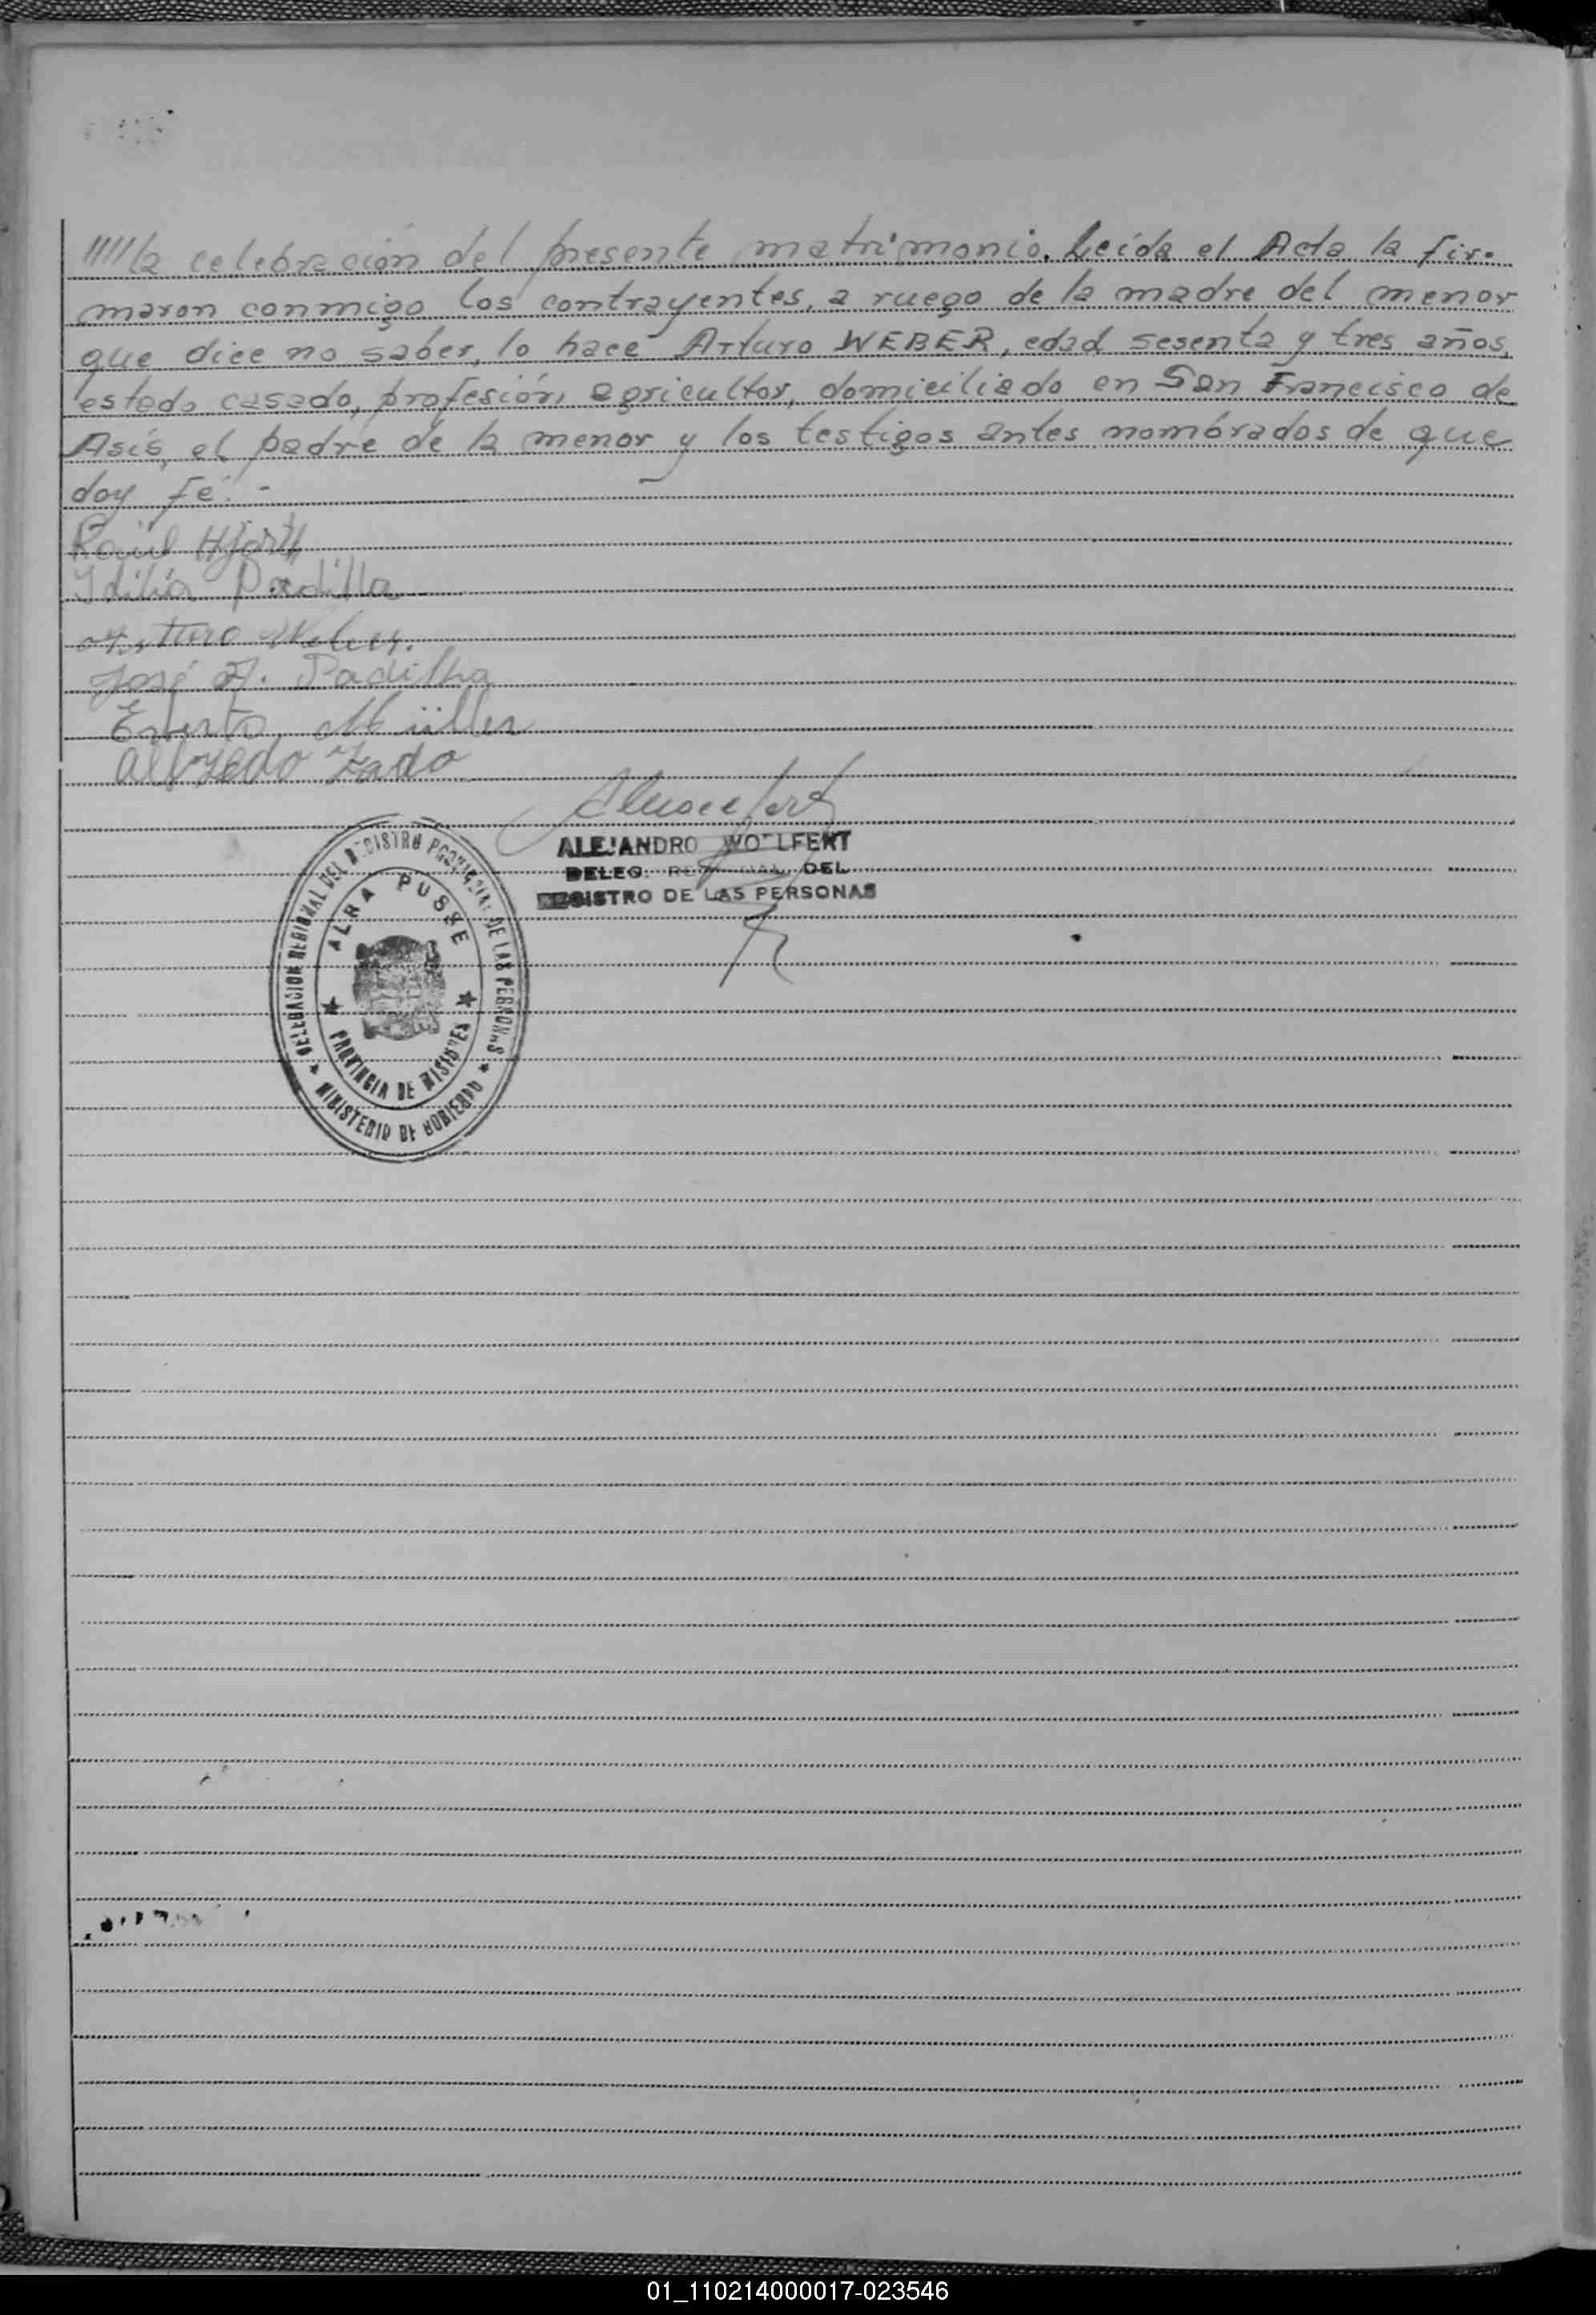 /////la celebración del presente matrimonio. Leída el Acta la fir-
maron conmigo los contrayentes, a ruego de la madre del menor
que dice no saber, lo hace Arturo WEBER, edad sesenta y tres años,
estado casado, profesión agricultor, domiciliado en San Francisco de
Asís, el padre de la menor y los testigos antes nombrados de que
doy fé.-
Raúl Hjorth
Idilia Padilla
Arturo Weber.
José Padilha
Müller
Alfredo Zado
ALEJANDRO WOLLFERT
DELEG. DEL
REGISTRO DE LAS PERSONAS
DELEGACION REGIONAL DEL REGISTRO PROVINCIAL DE LAS PERSONAS
ALBA POSSE
PROVINCIA DE MISIONES
MINISTERIO DE GOBIERNO
01_110214000017-023546